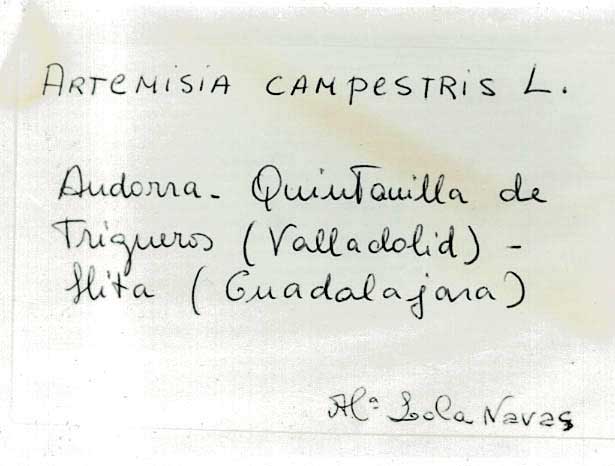 ARTEMISIA CAMPESTRIS L.
Andorra - Quintanilla de
Trigueros (Valladolid) -
Hita (Guadalajara)
Mª Lola Navas